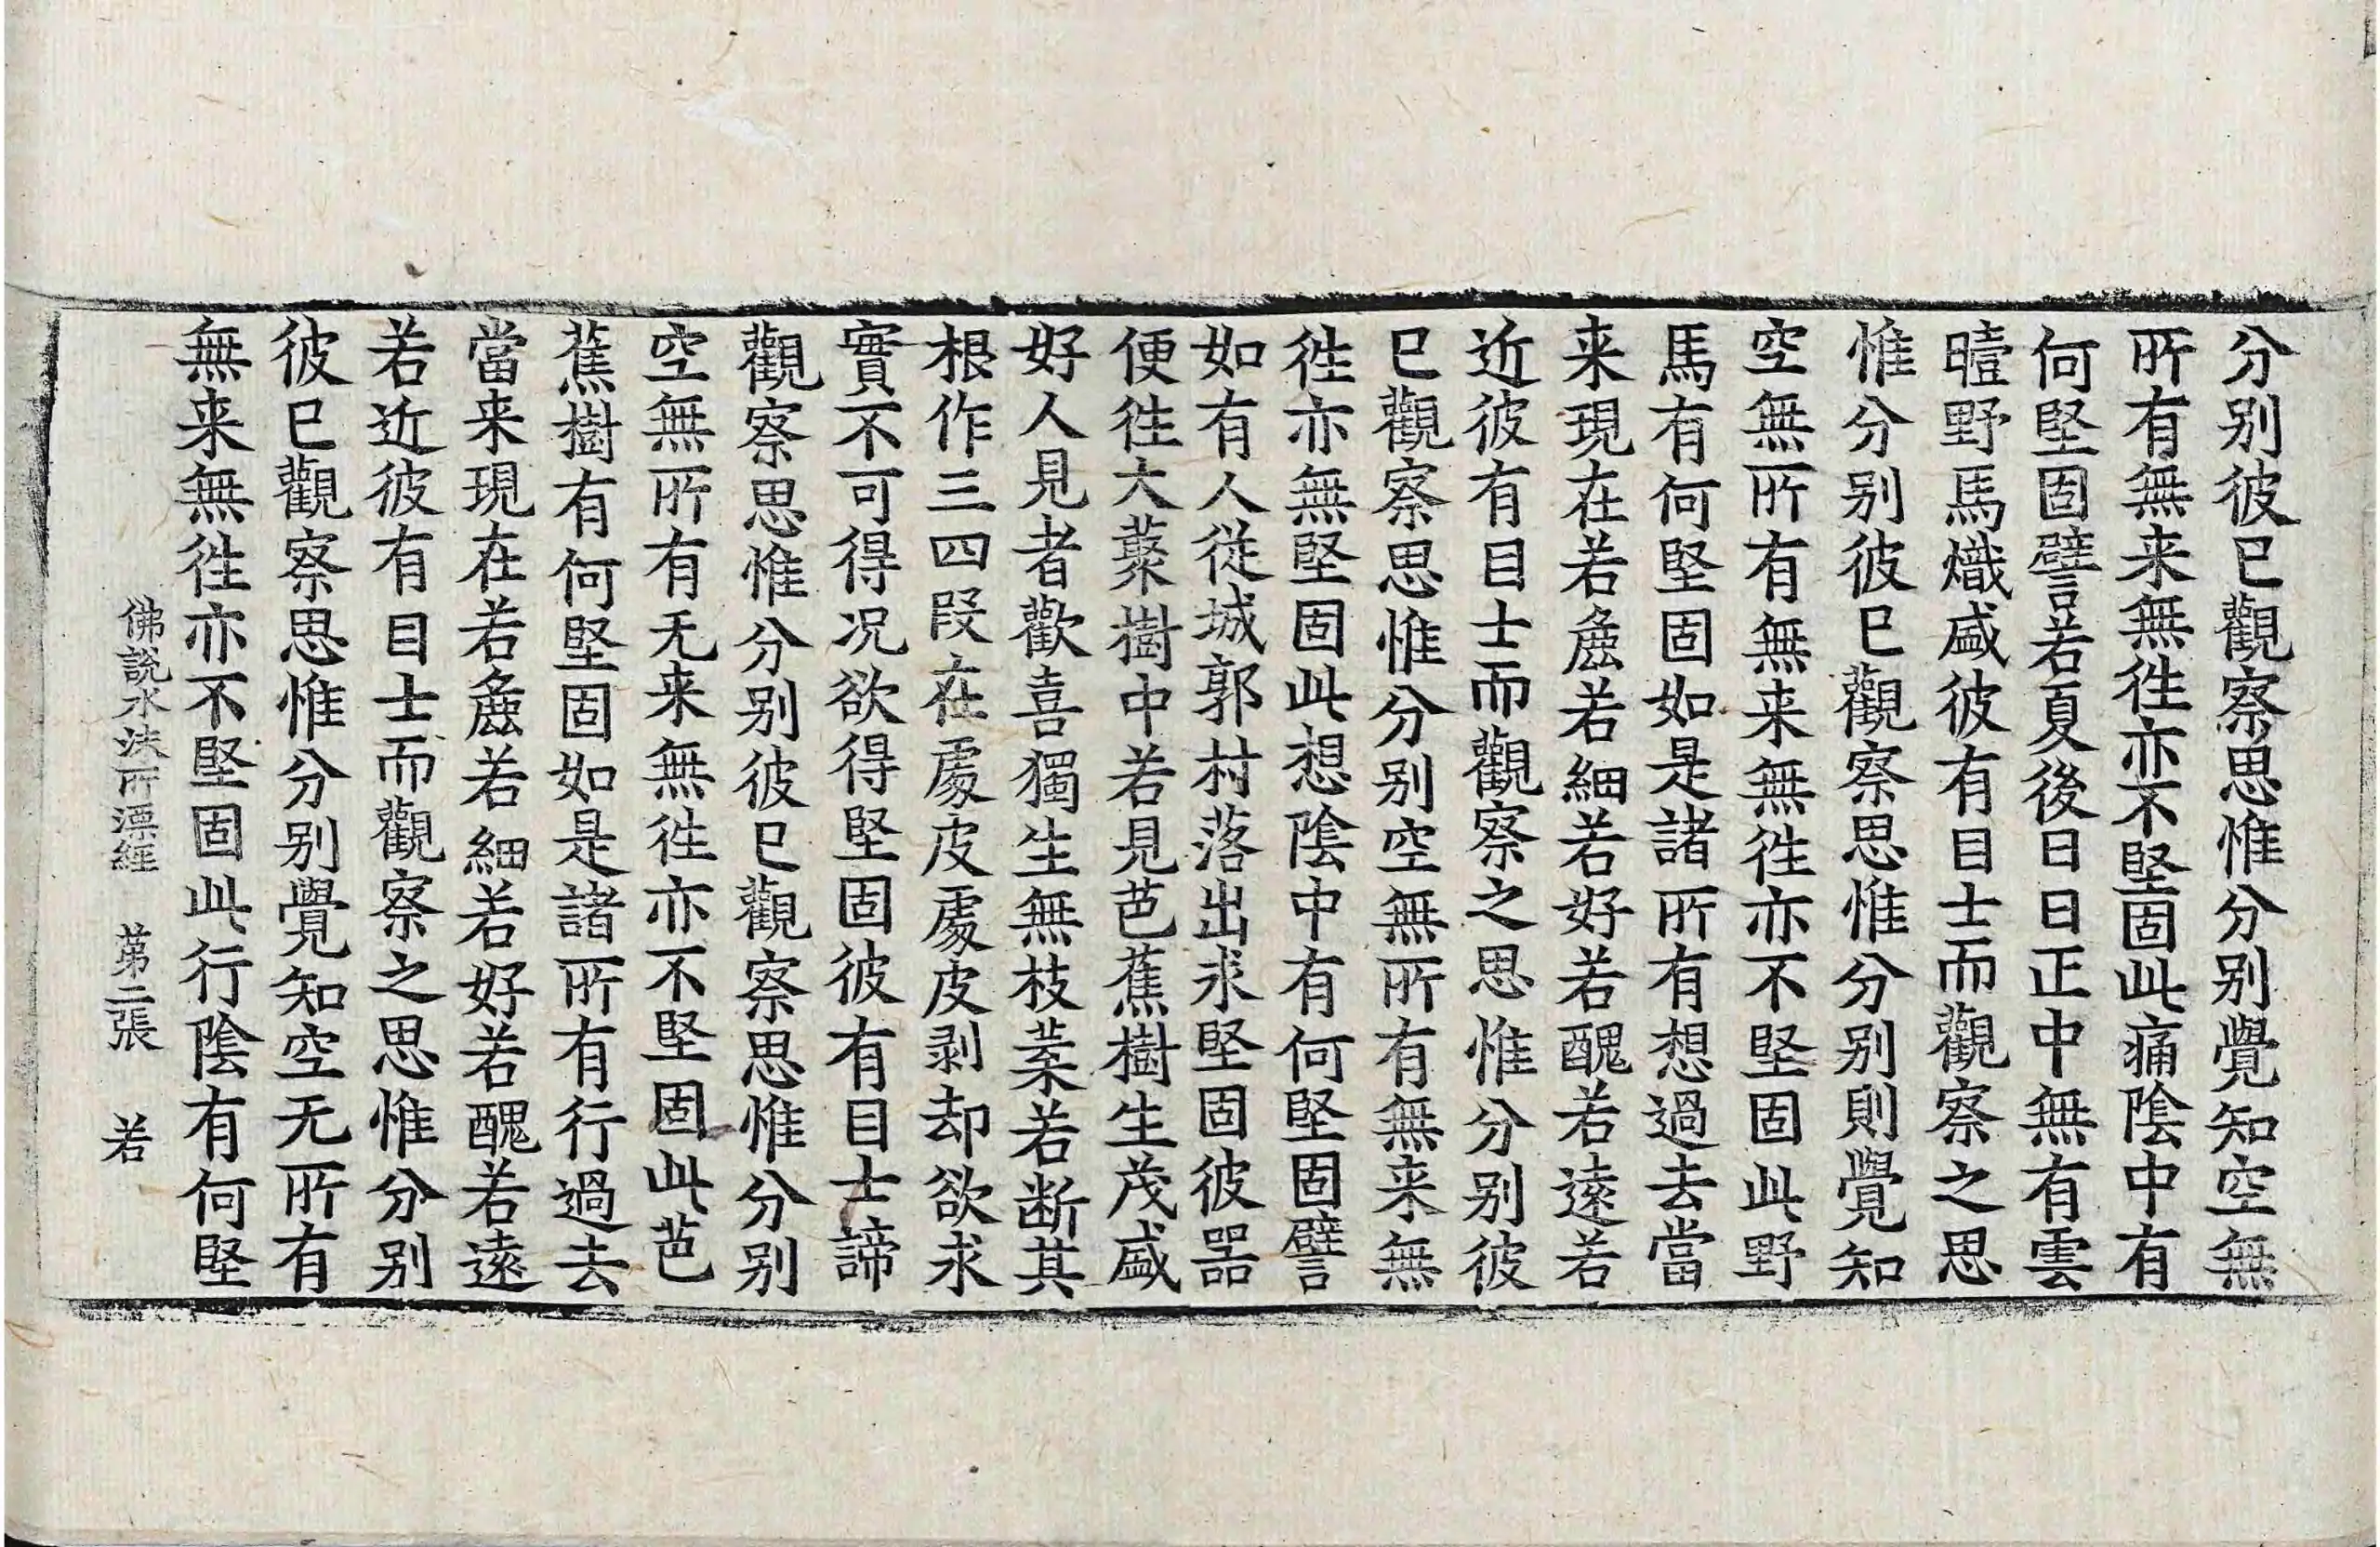 分别彼已觀察思惟分别覺知空無
所有無来無徃亦不堅固此痛陰中有
何堅固譬若夏後日日正中無有雲
曀野馬熾盛彼有目士而觀察之思
惟分别彼已觀察思惟分别則覺知
空無所有無来無徃亦不堅固此野
馬有何堅固如是諸所有想過去當
来現在若麁若細若好若醜若遠若
近彼有目士而觀察之思惟分别彼
已觀察思惟分别空無所有無来無
徃亦無堅固此想陰中有何堅固譬
如有人從城郭村落出求堅固彼器
便徃大藂樹中若見芭蕉樹生茂盛
好人見者歡喜獨生無枝葉若断其
根作三四段在處皮處皮剥却欲求
實不可得况欲得堅固彼有目士諦
觀察思惟分别彼已觀察思惟分别
空無所有无来無徃亦不堅固此芭
蕉樹有何堅固如是諸所有行過去
當来現在若麁若細若好若醜若遠
若近彼有目士而觀察之思惟分别
彼已觀察思惟分别覺知空无所有
無来無徃亦不堅固此行陰有何堅
佛說水沫所漂經 第二張 若